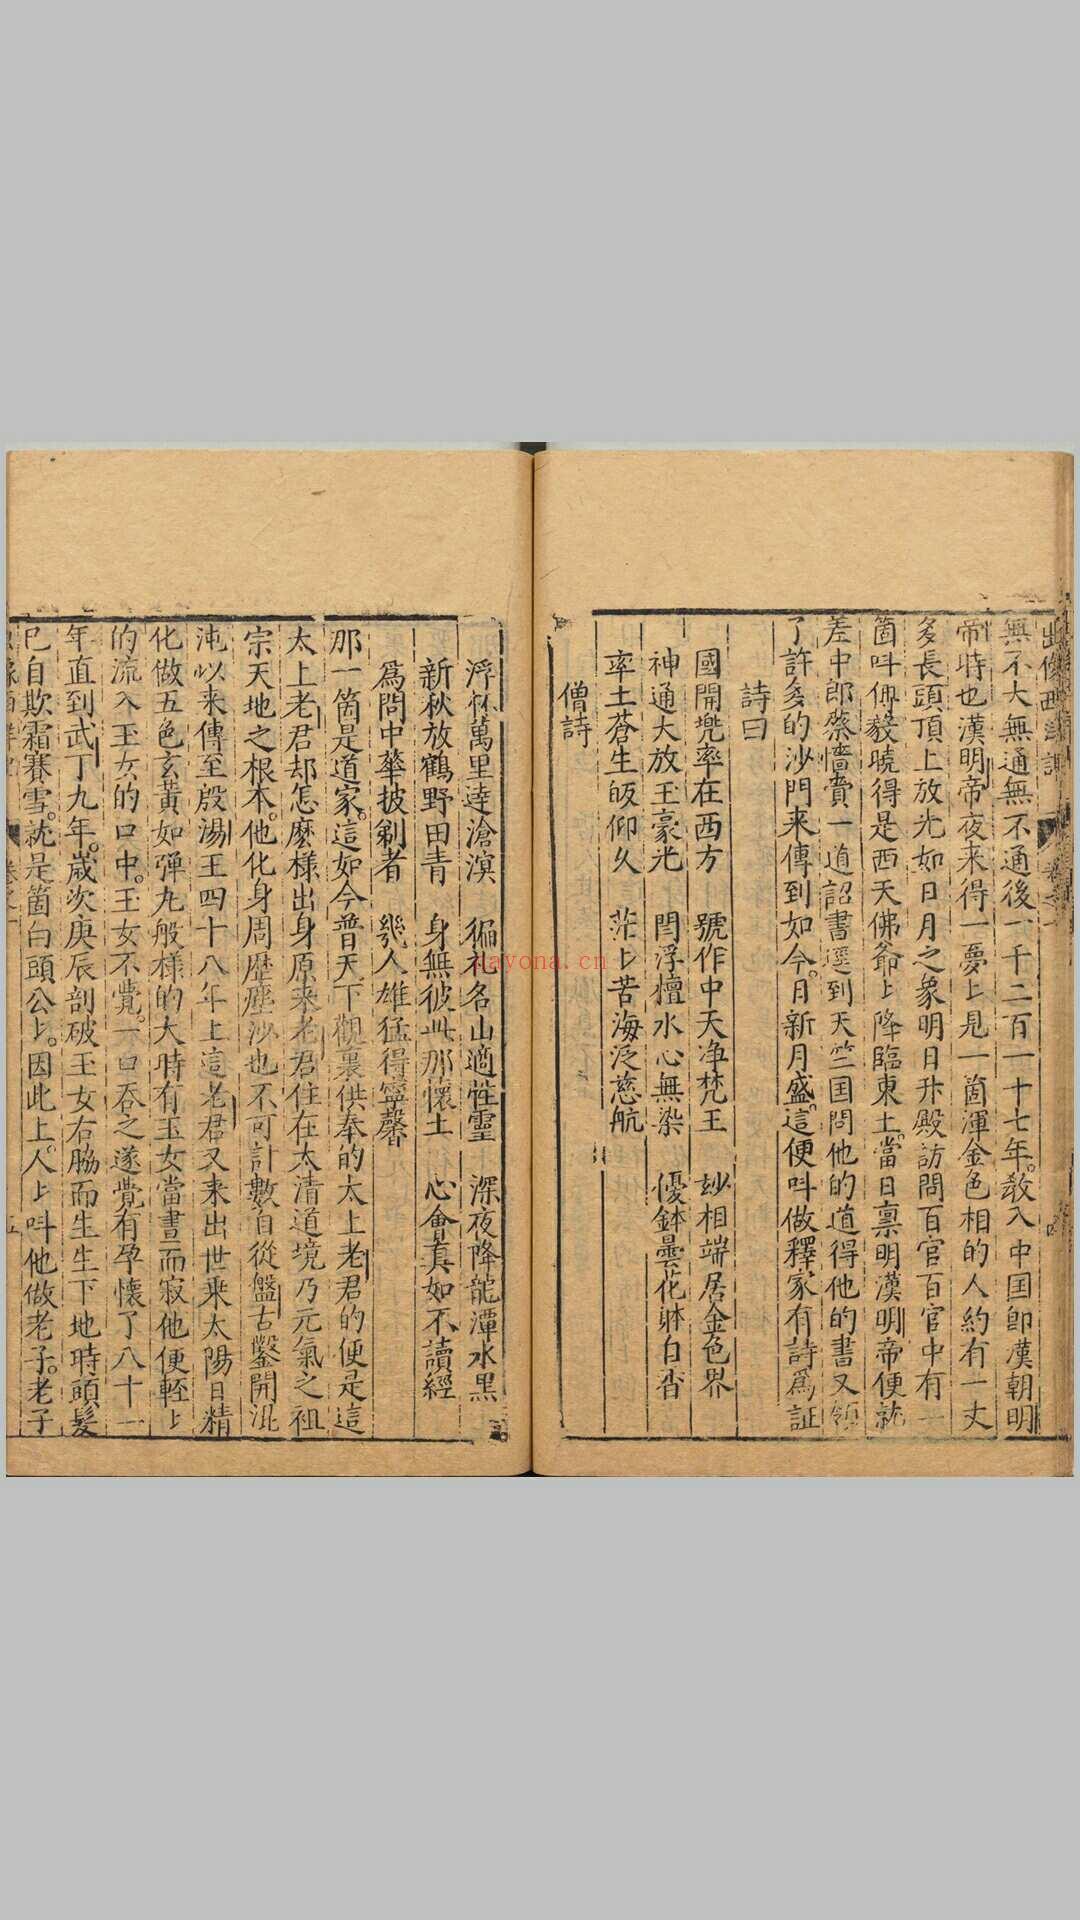 無不大無通無不通後一千二百一十七年教入中国即漢朝明
帝時也漢明帝夜来得一夢上見一箇渾金色相的人約有一丈
多長頭頂上放光如日月之象明日升殿訪問百官百官中有一
箇呌佩毅曉得是西天佛爺上降臨東土當日禀明漢明帝便就
差中郎蔡愔賫一道詔書逕到天竺国問他的道得他的書又領
了許多的沙門来傳到如今日新月盛這便呌做釋家有詩爲証
詩曰
國開兠率在西方 號作中天净梵王 妙相端居金色界
神通大放玉毫光 閻浮檀水心無染 優鉢曇花躰自香
率土蒼生皈仰久 茫上苦海泛慈航
僧詩
浮杯萬里達滄溟 徧礼名山適性靈 深夜降龍潭水黑
新秋放鶴野田青 身無彼此那懷土 心會真如不讀經
爲問中華披剃者 幾人雄猛得寧馨
那一箇是道家這如今普天下觀裏供奉的太上老君的便是這
太上老君却怎麽樣出身原来老君住在太清道境乃元氣之祖
宗天地之根本他化身周歷塵沙也不可計數自從盤古鑿開混
沌以来傳至殷湯王四十八年上這老君又来出世乗太陽日精
化做五色玄黃如弹丸般樣的大時有玉女當晝而寢他便輕上
的流入玉女的口中玉女不覺一口吞之遂覺有孕懷了八十一
年直到武丁九年歲次庚辰剖破玉女右脇而生生下地時頭髮
已自欺霜賽雪就是箇白頭公上因此上人上呌他做老子老子
nayona.cn